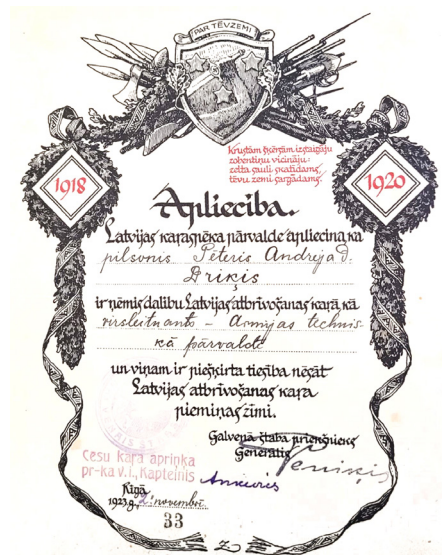 PAR TĒVZEMI
Krustām šķērsām izstaigāju
zobentiņu vicināju:
zelta sauli skatīdams,
tēvu zemi sargādams.
1918
1920
Apliecība.
Latvijas karaspēka pārvalde apliecina, ka
pilsonis Pēteris Andreja d.
Driķis
ir ņēmis dalību Latvijas atbrīvošanas karā kā
virsleitnants – Armijas technis-
kā pārvaldē
un viņam ir piešķirta tiesība nēsāt
Latvijas atbrīvošanas kara
piemiņas zīmi.
Galvenā štaba priekšnieks
Ģenerālis Peniķis
Cēsu kara apriņķa
pr-ka v.i., Kapteinis
Rīgā,
1923.g. 2. novembrī.
33